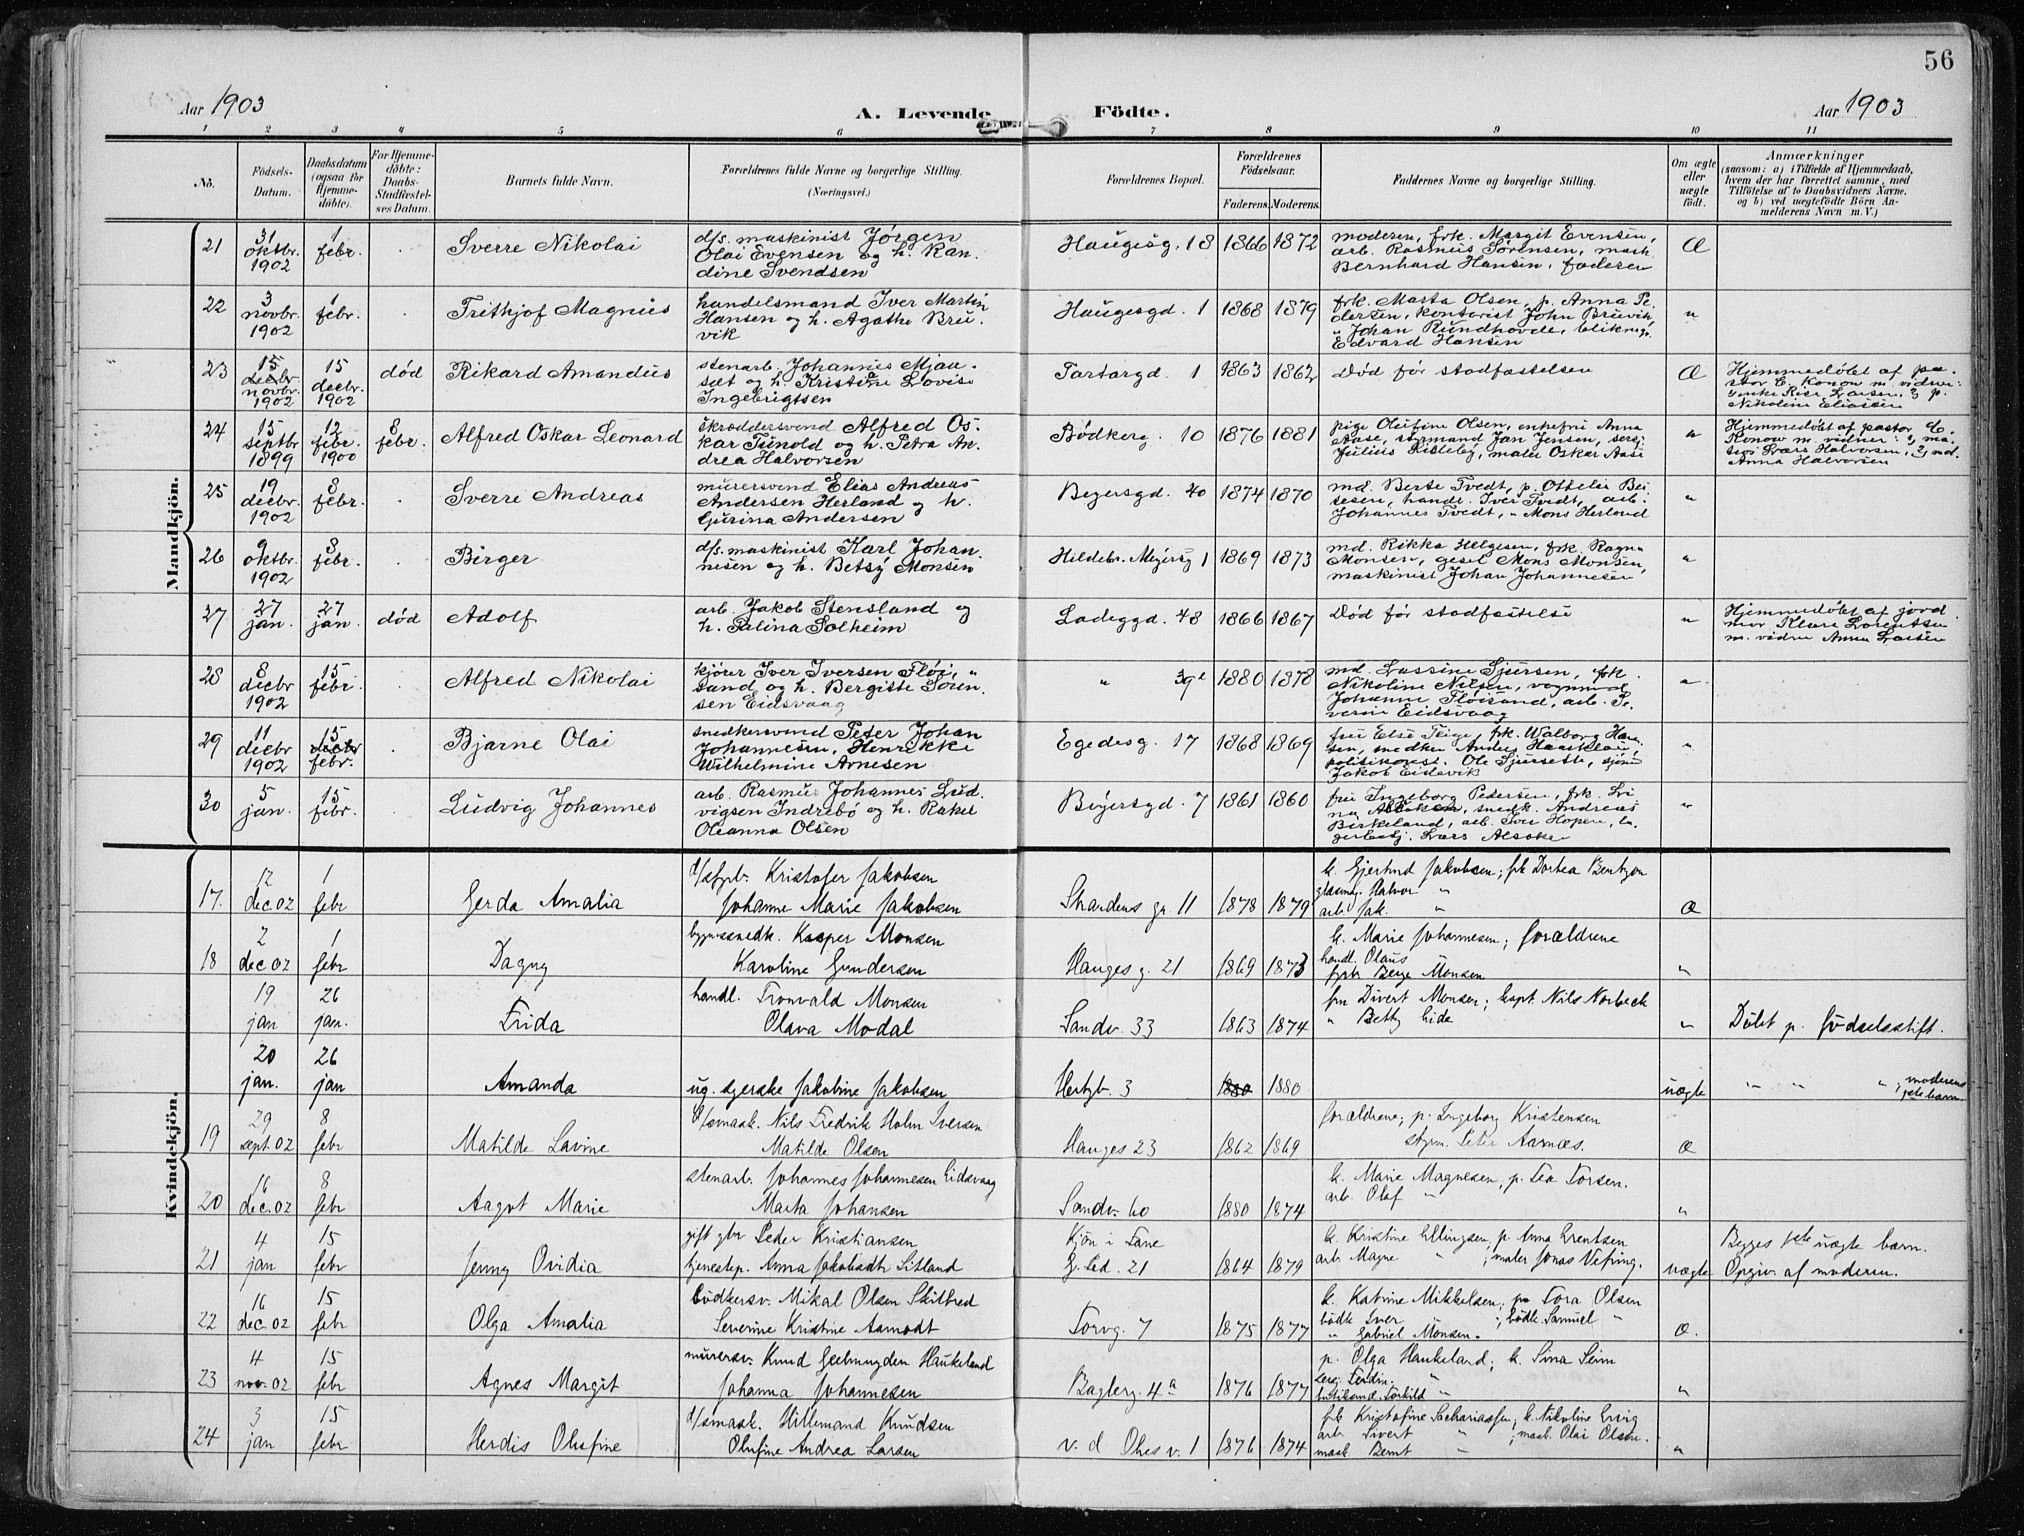 56
Aar 1903
A. Levende Födte.
Aar 1903
1 2 3 4 5 6 7 8 9 10 11
No.
Födsels-
Datum.
Daabsdatum
(ogsaa for
Hjemme-
döbte).
For Hjemme-
döbte:
Daabs-
Stadfæstel-
ses Datum.
Barnets fulde Navn.
Forældrenes fulde Navne og borgerlige Stilling.
(Næringsvei.)
Forældrenes Bopæl.
Forældrenes
Födselsaar.
Faderens.
Moderens.
Faddernes Navne og borgerlige Stilling.
Om ægte
eller
uægte
födt.
Anmærkninger
(saasom: a) i Tilfælde af Hjemmedaab,
hvem der har forrettet samme, med
Tilföielse af to Daabsvidners Navne,
og b) ved uægtefödte Börn An-
melderens Navn m. V.)
Mandkjön.
21
31
oktbr.
1902
1
febr.
Sverre Nikolai
d/s. maskinist Jørgen
Olai Evensen og h. Ran-
dine Svendsen
Haugesg. 18
1866
1872
moderen, frk. Margit Evensen,
arb. Rasmus Sørensen, mask.
Bernhard Hansen, faderen
Æ
22
3
novbr.
1902
1
febr.
Frithjof Magnus
handelsmand Iver Martin
Hansen og h. Agathe Bru-
vik
Haugesgd. 1
1868
1879
frk. Marta Olsen, p. Anna Pe-
dersen, kontorist John Bruvik
" Johan Rundhovde,
Edvard Hansen
"
23
15
decbr.
novbr.
1902
15
decbr.
1902
død
Rikard Amandus
stenarb. Johannes Mjau-
sæt og h. Kristine Lovise
Ingebrigtsen
Tartargd. 1
1863
1862
Død før stadfæstelsen
Æ
Hjemmedøbt af pa-
stor C. Konow m. vidner:
enke Rise Larsen, p.
Nikoline Eliassen
24
15
septbr
1899
12
febr.
1900
8
febr.
Alfred Oskar Leonard
skræddersvend Alfred Os-
kar Tunold og h. Petra An-
drea Halvorsen
Bødkerg. 10
1876
1881
pige Olufine Olsen, enkefru Anna
Aase, sømand Jan Jensen, sers.
Julius Risleby, maler Oskar Aase
"
Hjemmedøbt af pastor C.
Konow m. vidner: ma-
tros Lars Halvorsen, md.
Anna Halvorsen
25
19
decbr.
1902
8
febr.
Sverre Andreas
murersvend Elias Andreas
Andersen Herland og h.
Gurina Andersen
Beyersgd. 40
1874
1870
md. Berte Tvedt, p. Ottelie
handl. Iver Tvedt, arb.
Johannes Tvedt, " Mons Herland
"
26
9
oktbr.
1902
8
febr.
Birger
d/s. maskinist Karl Johan-
nesen og h. Betsy Monsen
Hildebr. Meyersg 1
1869
1873
md. Rikka Helgesen, frk. Ragna
Monsen, gesel Mons Monsen,
maskinist Johan Johannesen
"
27
27
jan.
27
jan.
død
Adolf
arb. Jakob Stensland og
h. Palina Solheim
Ladeggd. 48
1866
1867
Død før stadfæstelse
"
Hjemmedøbt af jord
mor Klara Lorentsen
m. vidne Anna Larsen
28
8
decbr
1902
15
febr.
Alfred Nikolai
kjører Iver Iversen Fløi-
sand og h. Bergitte Søren-
sen Eidsvaag
" 39
1880
1878
md. Lassine Sjursen, frk.
Nikoline Nilsen, vognmd
Johannes Fløisand, arb. Se-
verin Eidsvaag
"
29
11
decbr
1902
15
decbr
febr.
Bjarne Olai
snedkersvend Peter Johan
Johannesen, Henrikke
Wilhelmine Arnesen
Egedesg. 17
1868
1869
fru Else Teige, frk. Walborg Han-
sen, snedker Anders
politikonst. Ole
Jakob Eidsvik
"
30
5
jan.
15
febr.
Ludvig Johannes
arb. Rasmus Johannes Lud-
vigsen Indrebø og h. Rakel
Oleanna Olsen
Beyersgd. 7
1861
1860
fru Ingeborg Pedersen, frk. Li
na snedk. Andreas
Birkeland, arb. Iver Hopen,
Lars Alsaker
"
Kvindekjön.
17.
12
dec. 02
1
febr
Gerda Amalia
d/sfyrb. Kristofer Jakobsen
Johanne Marie Jakobsen
Strandens gr. 11
1878
1879
k. Gjertrud Jakobsen; frk Dortea Bentzon
glasmag. Halvor "
arb. Jak. "
Æ
18
2
dec 02
1
febr
Dagny
bygn.ssnedk. Kasper Monsen
Karoline Gundersen
Hauges g. 21
1869
1873
k. Marie Johannesen; forældrene
handl. Olaus
fyrb. Berge Monsen
"
19
jan
26
jan.
Frida
handl. Tronvald Monsen
Olava Modal
Sandv. 33
1863
1874
fru Divert Monsen; kapt. Nils Norbeck
" Betty Eide
"
Døbt p. fødselsstift.
20
jan.
26
jan
Amanda
ug. syerske Jakobine Jakobsen
Hertzb. 3
1880
1880
uægte
" " " ; moderens
1ste barn
19
29
sept. 02
8
febr
Matilde Lavine
d/smask. Nils Fredrik Holm Iversen
Matilde Olsen
Hauges 23
1862
1869
forældrene; p. Ingeborg Kristensen
stym. Peter Aarnæs.
Æ
20
16
dec. 02
8
febr
Aagot Marie
stenarb. Johannes Johannesen Eidsvaag
Marta Johansen
Sandv. 60
1880
1874
k. Marie Magnesen, p. Lea Torsen.
arb. Olaf "
"
21
4
jan
15
febr
Jenny Ovidia
gift gbr Peder Kristiansen
tjenestep. Anna Jakobsdtr Litland
Kjøn i Fane
G. Led. 21
1864
1879
k. Kristine Ellingsen, p Anna Erentsen
arb. Magne " ; maler Jonas Vefring.
uægte
Begges 1ste uægte barn.
Opgiv. af moderen.
22
16
dec. 02
15
febr
Olga Amalia
bødkersv. Mikal Olsen Skilbred
Severine Kristine Aamodt
Torvg. 7
1875
1877
k. Katrine Mikkelsen; Tora Olsen
bødk Iver " ; bødk. Samuel "
" Gabriel Monsen.
Æ.
23
4
nov. 02
15
febr
Agnes Margit
murersv. Knud Geelmuyden Haukeland
Johanna Johannesen
Baglerg. 4a
1876
1877
p. Olga Haukeland; k. Sina Seim
serg. Ferdin. "
Torkild "
"
24
3
jan
15
febr
Herdis Olufine
d/smask. Hillemand Knudsen
Olufine Andrea Larsen
v. d Ohes v. 1
1876
1874
frk. Kristofine Sachariassen; k. Nikoline Ervig
arb. Sivert " ; mask. Olai Olsen.
mask Bernt "
"